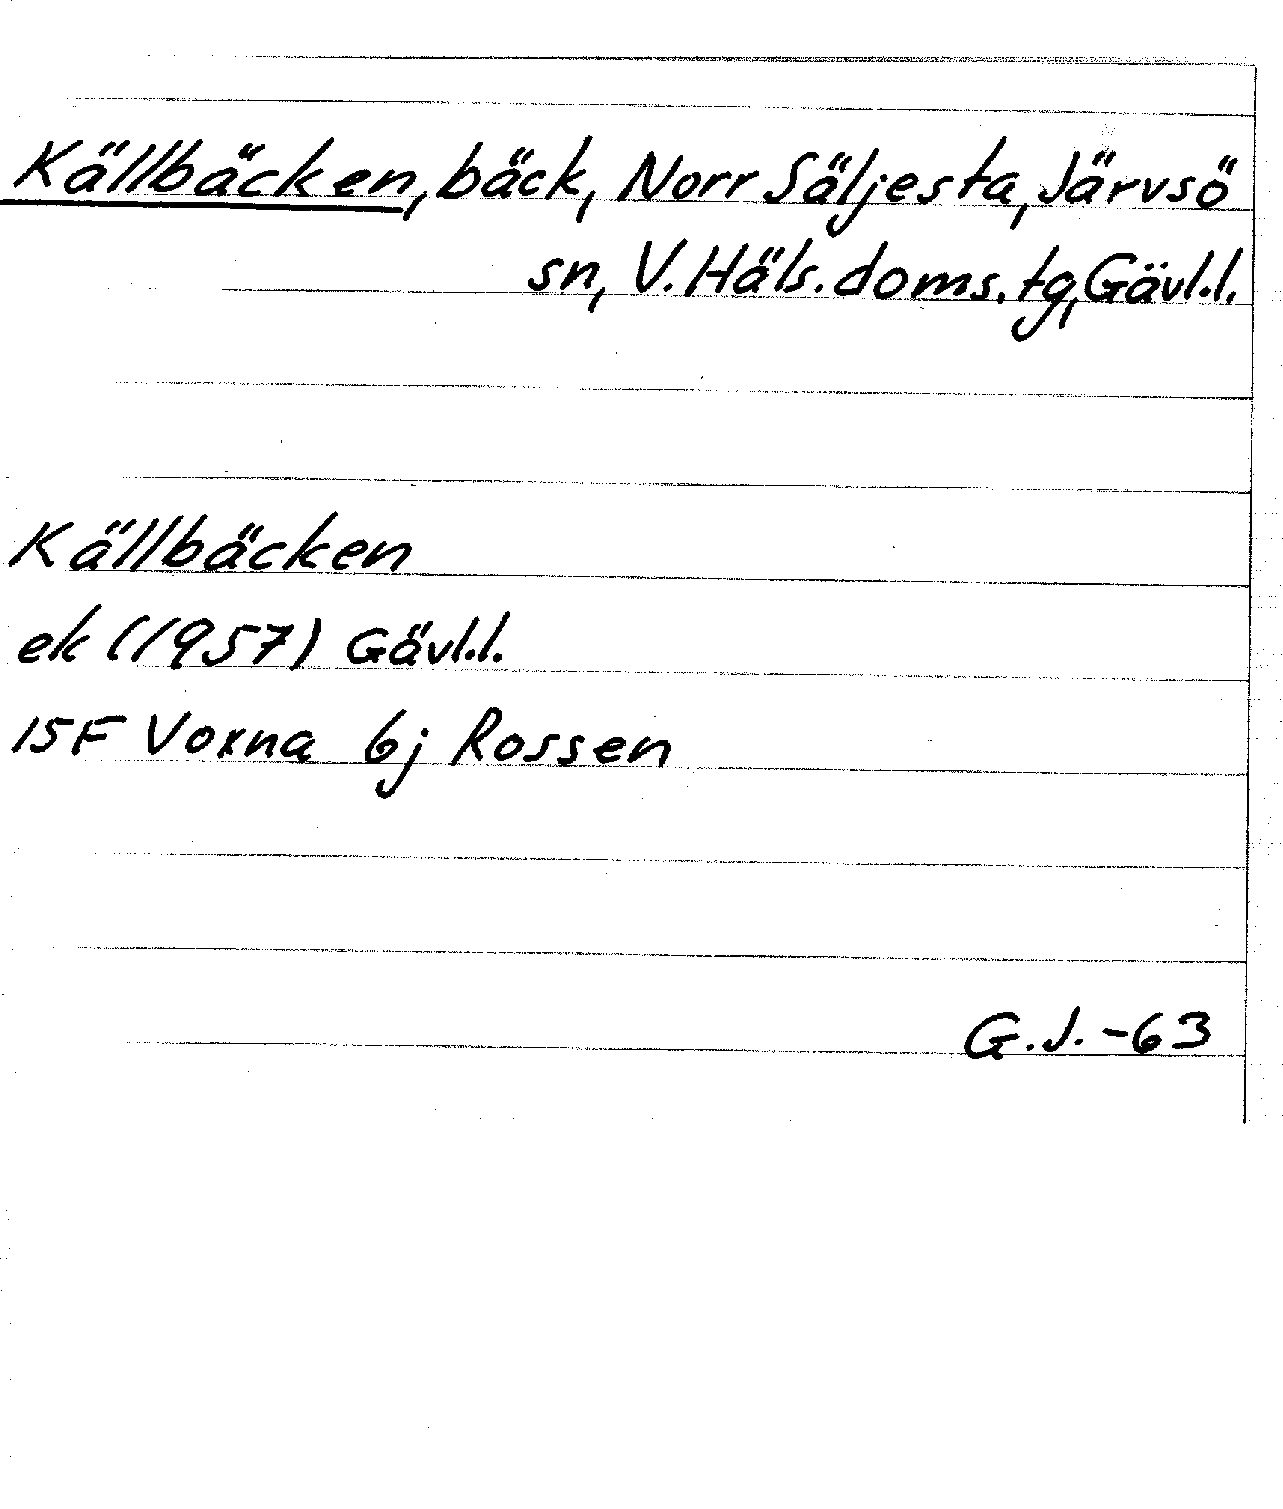 Källbäcken, bäck, Norr Säljesta, Järvsö
sn, V. Häls. doms. tg, Gävl.l.
Källbäcken
ek (1957) Gävl.l.
15F Voxna 6j Rossen
G.J. -63